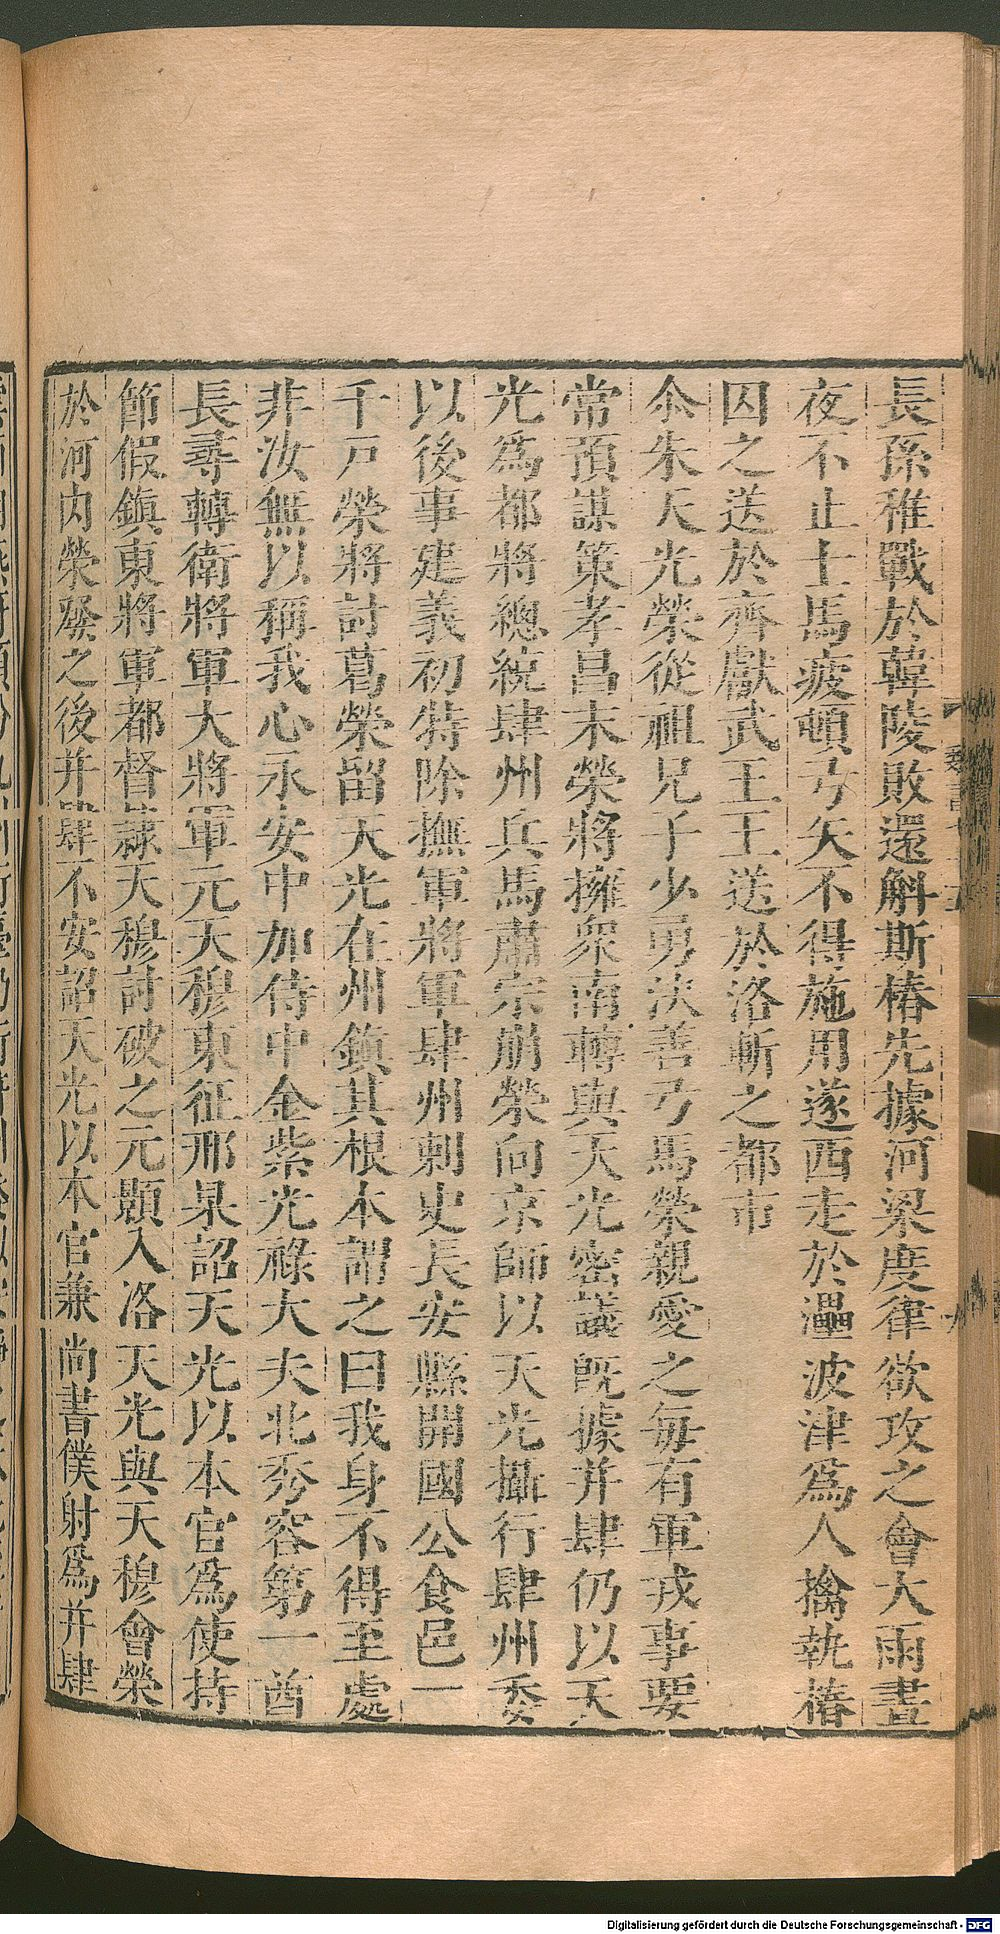 長孫稚戰於韓陵敗還斛斯椿先據河梁度律欲攻之會大雨晝
夜不止士馬疲頓弓矢不得施用遂西走於灅波津爲人擒執椿
囚之送於齊獻武王王送於洛斬之都市
尒朱天光榮從祖兄子少勇決善弓馬榮親愛之每有軍戎事要
常預謀策孝昌末榮將擁衆南轉與天光密議旣據并肆仍以天
光爲都將總統肆州兵馬肅宗崩榮向京師以天光攝行肆州委
以後事建義初特除撫軍將軍肆州刺史長安縣開國公食邑一
千戸榮將討葛榮留天光在州鎮其根本謂之曰我身不得至處
非汝無以稱我心永安中加侍中金紫光祿大夫北秀容第一酋
長尋轉衛將軍大將軍元天穆東征邢杲詔天光以本官爲使持
節假鎮東將軍都督隷天穆討破之元顥入洛天光與天穆會榮
於河内榮發之後并肆不安詔天光以本官兼尚書僕射爲并肆
Digitalisierung gefördert durch die Deutsche Forschungsgemeinschaft - DFG